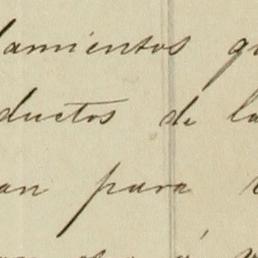 damientos q
ductos de la
an para